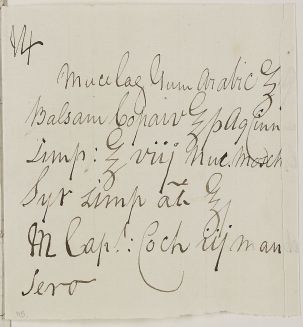 Mucilag Gum Arabic ʒ
Balsam Copaiv ʒp Aq Cinn
Simp: ʒ viij Nuc. Mosch
Syr Simp āā ʒ
M Cap.: Coch iij man
sero